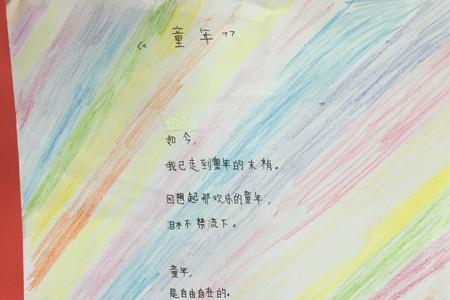 《童年》
如今，
我已走到童年的末梢。
回想起那欢乐的童年，
泪水不禁流下。
童年，
是自由自在的。